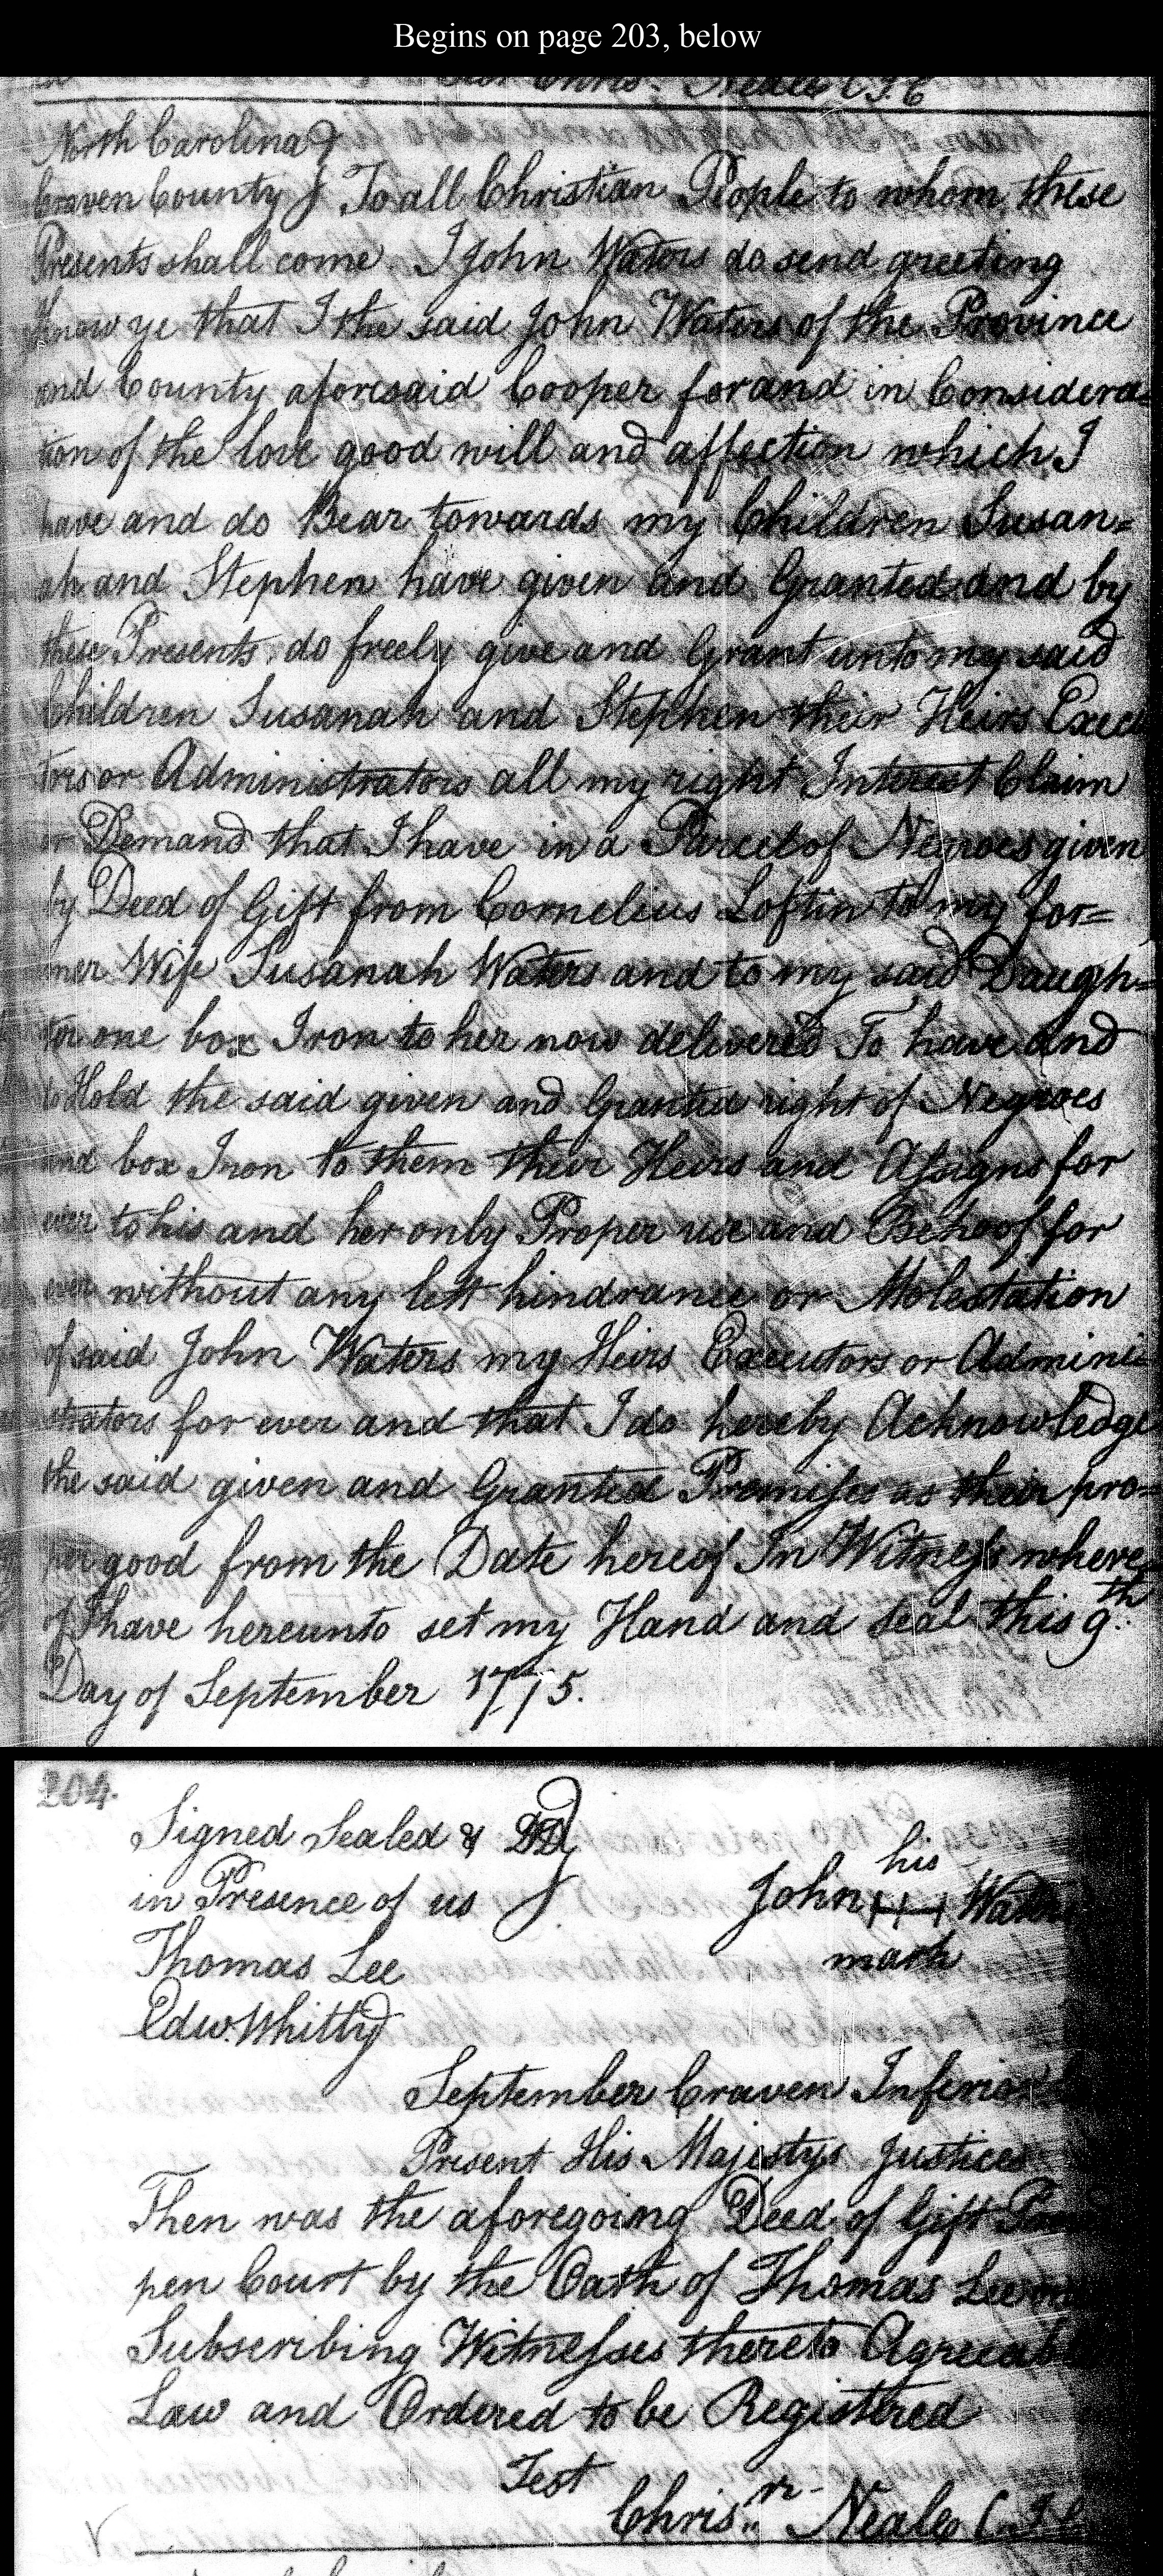 Begins on page 203, below
Chris. Neale C I C
North Carolina
Craven County To all Christian People to whom these
Presents shall come I John Waters do send greeting
know ye that I the said John Waters of the Province
and County aforesaid Cooper for and in Considera=
tion of the love good will and affection which I
have and do Bear towards my Children Susan=
ah and Stephen have given and Granted and by
these Presents do freely give and Grant unto my said
Children Susanah and Stephen their Heirs Execu
tors or Administrators all my right Interest Claim
or Demand that I have in a Parcel of Negroes given
by Deed of Gift from Cornelius Loftin to my for=
mer Wife Susanah Waters and to my said Daugh=
ter one box Iron to her now delivered To have and
to Hold the said given and Granted right of Negroes
and box Iron to them their Heirs and Assigns for
ever to his and her only Proper use and Behoof for
ever without any lett hindrance or Molestation
of said John Waters my Heirs Executors or Admini=
strators for ever and that I do hereby Acknowledge
the said given and Granted Premises as their pro=
per good from the Date hereof In Witness where
of I have hereunto set my Hand and Seal this 9th
Day of September 1775.
204.
Signed Sealed & DD
his
in Presence of us John H Waters
Thomas Lee mark
Edw. Whitty
September Craven Inferior
Present His Majestys Justices
Then was the aforegoing Deed of Gift
pen Court by the Oath of Thomas Lee
Subscribing Witnesses thereto
Law and Ordered to be Registered
Test
Chrisr. Neale C I C